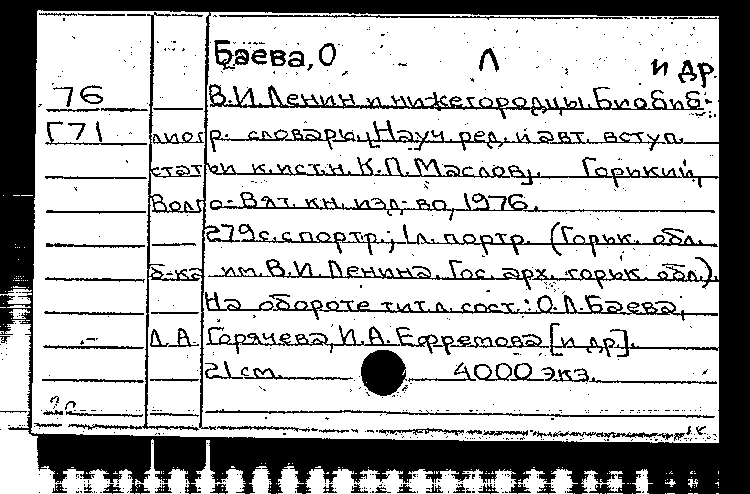 Баева, О Л и др
76 В.И. Ленин и нижегородцы. Биобиб-
Г71 лиогр. словарь. [Науч. ред. и авт. вступ.
статьи к. ист. н. К.П. Маслов]. Горький,
Волго-Вят. кн. изд-во, 1976.
279 с. с портр.; 1 л. портр. (Горьк. обл.
б-ка им. В.И. Ленина. Гос. арх. горьк. обл.).
На обороте тит. л. сост.: О.Л. Баева,
Л.А. Горячева, И.А. Ефремова [и др].
21 см. 4000 экз.